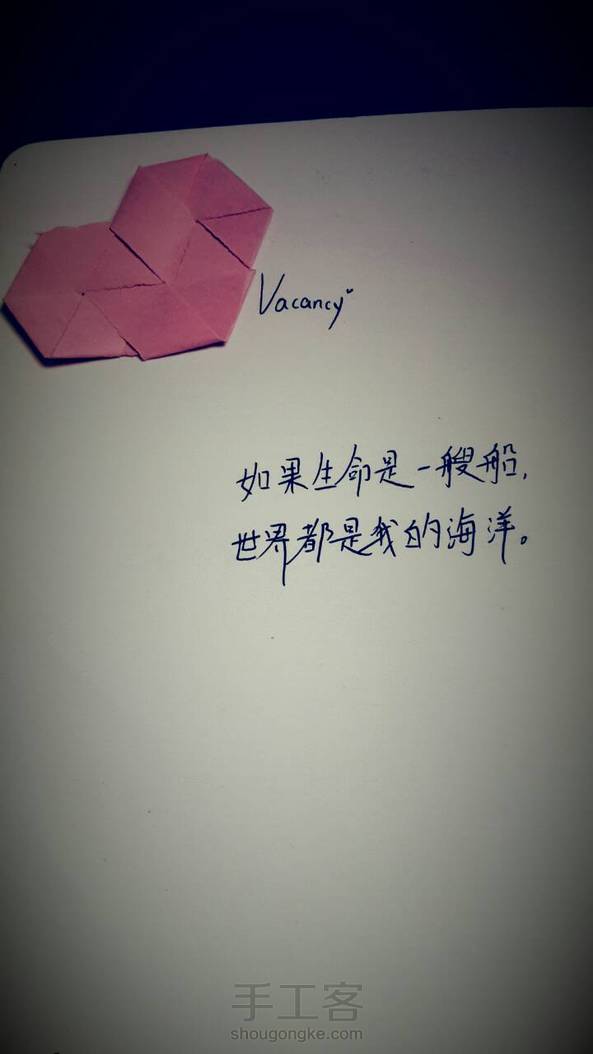 Vacancy
如果生命是一艘船,
世界都是我的海洋。
手工客
shougongke.com